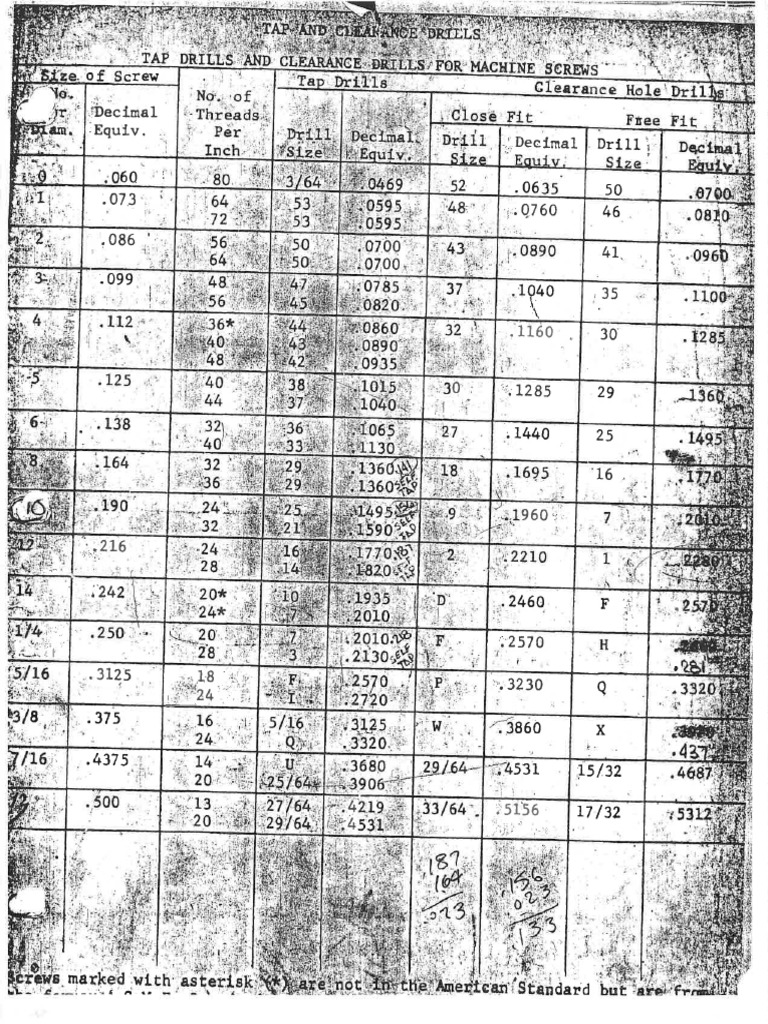 TAP AND CLEARANCE DRILLS
TAP DRILLS AND CLEARANCE DRILLS FOR MACHINE SCREWS
Size of Screw Tap Drills Clearance Hole Drills
No. or Diam. Decimal Equiv. No. of Threads Per Inch Drill Size Decimal Equiv. Close Fit Drill Size Decimal Equiv. Free Fit Drill Size Decimal Equiv.
0 .060 80 3/64 .0469 52 .0635 50 .0700
1 .073 64 53 .0595 48 .0760 46 .0810
72 53 .0595
2 .086 56 50 .0700 43 .0890 41 .0960
64 50 .0700
3 .099 48 47 .0785 37 .1040 35 .1100
56 45 .0820
4 .112 36* 44 .0860 32 .1160 30 .1285
40 43 .0890
48 42 .0935
5 .125 40 38 .1015 30 .1285 29 .1360
44 37 .1040
6 .138 32 36 .1065 27 .1440 25 .1495
40 33 .1130
8 .164 32 29 .1360 18 .1695 16 .1770
36 29 .1360 SELF TAP
10 .190 24 25 .1495 9 .1960 7 .2010
32 21 .1590 SELF TAP
12 .216 24 16 .1770 187 2 .2210 1 .2280
28 14 .1820
14 .242 20* 10 .1935 D .2460 F .2570
24* 7 .2010
1/4 .250 20 7 .2010 F .2570 H
28 3 .2130 SELF TAP .281
5/16 .3125 18 F .2570 P .3230 Q .3320
24 I .2720
3/8 .375 16 5/16 .3125 W .3860 X
24 Q .3320 .437
7/16 .4375 14 U .3680 29/64 .4531 15/32 .4687
20 25/64 .3906
1/2 .500 13 27/64 .4219 33/64 .5156 17/32 .5312
20 29/64 .4531
187 .156
164 023
.023 .133
Screws marked with asterisk (*) are not in the American Standard but are from